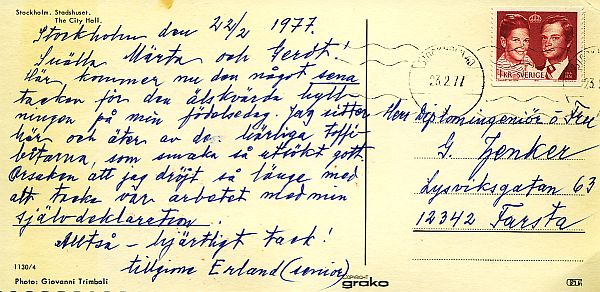 Stockholm. Stadshuset.
The City Hall.
Stockholm den 22/2 1977.
Snälla Märta och Gerdt!
Här kommer nu den något sena
tacken för den älskvärda hyll-
ningen på min födelsedag. Jag sitter
här och äter av de härliga toffi-
bitarna, som smaka så utsökt gott.
Orsaken att jag dröjt så länge med
att tacka var arbetet med min
självdeklaration.
Alltså – hjärtligt tack!
tillgivne Erland (senior)
1130/4
Photo: Giovanni Trimboli
COPYRIGHT
grako
1 KR SVERIGE
23.2.77
Herr Diplomingeniör o Fru
G. Zenker
Lysviksgatan 63
12342 Farsta